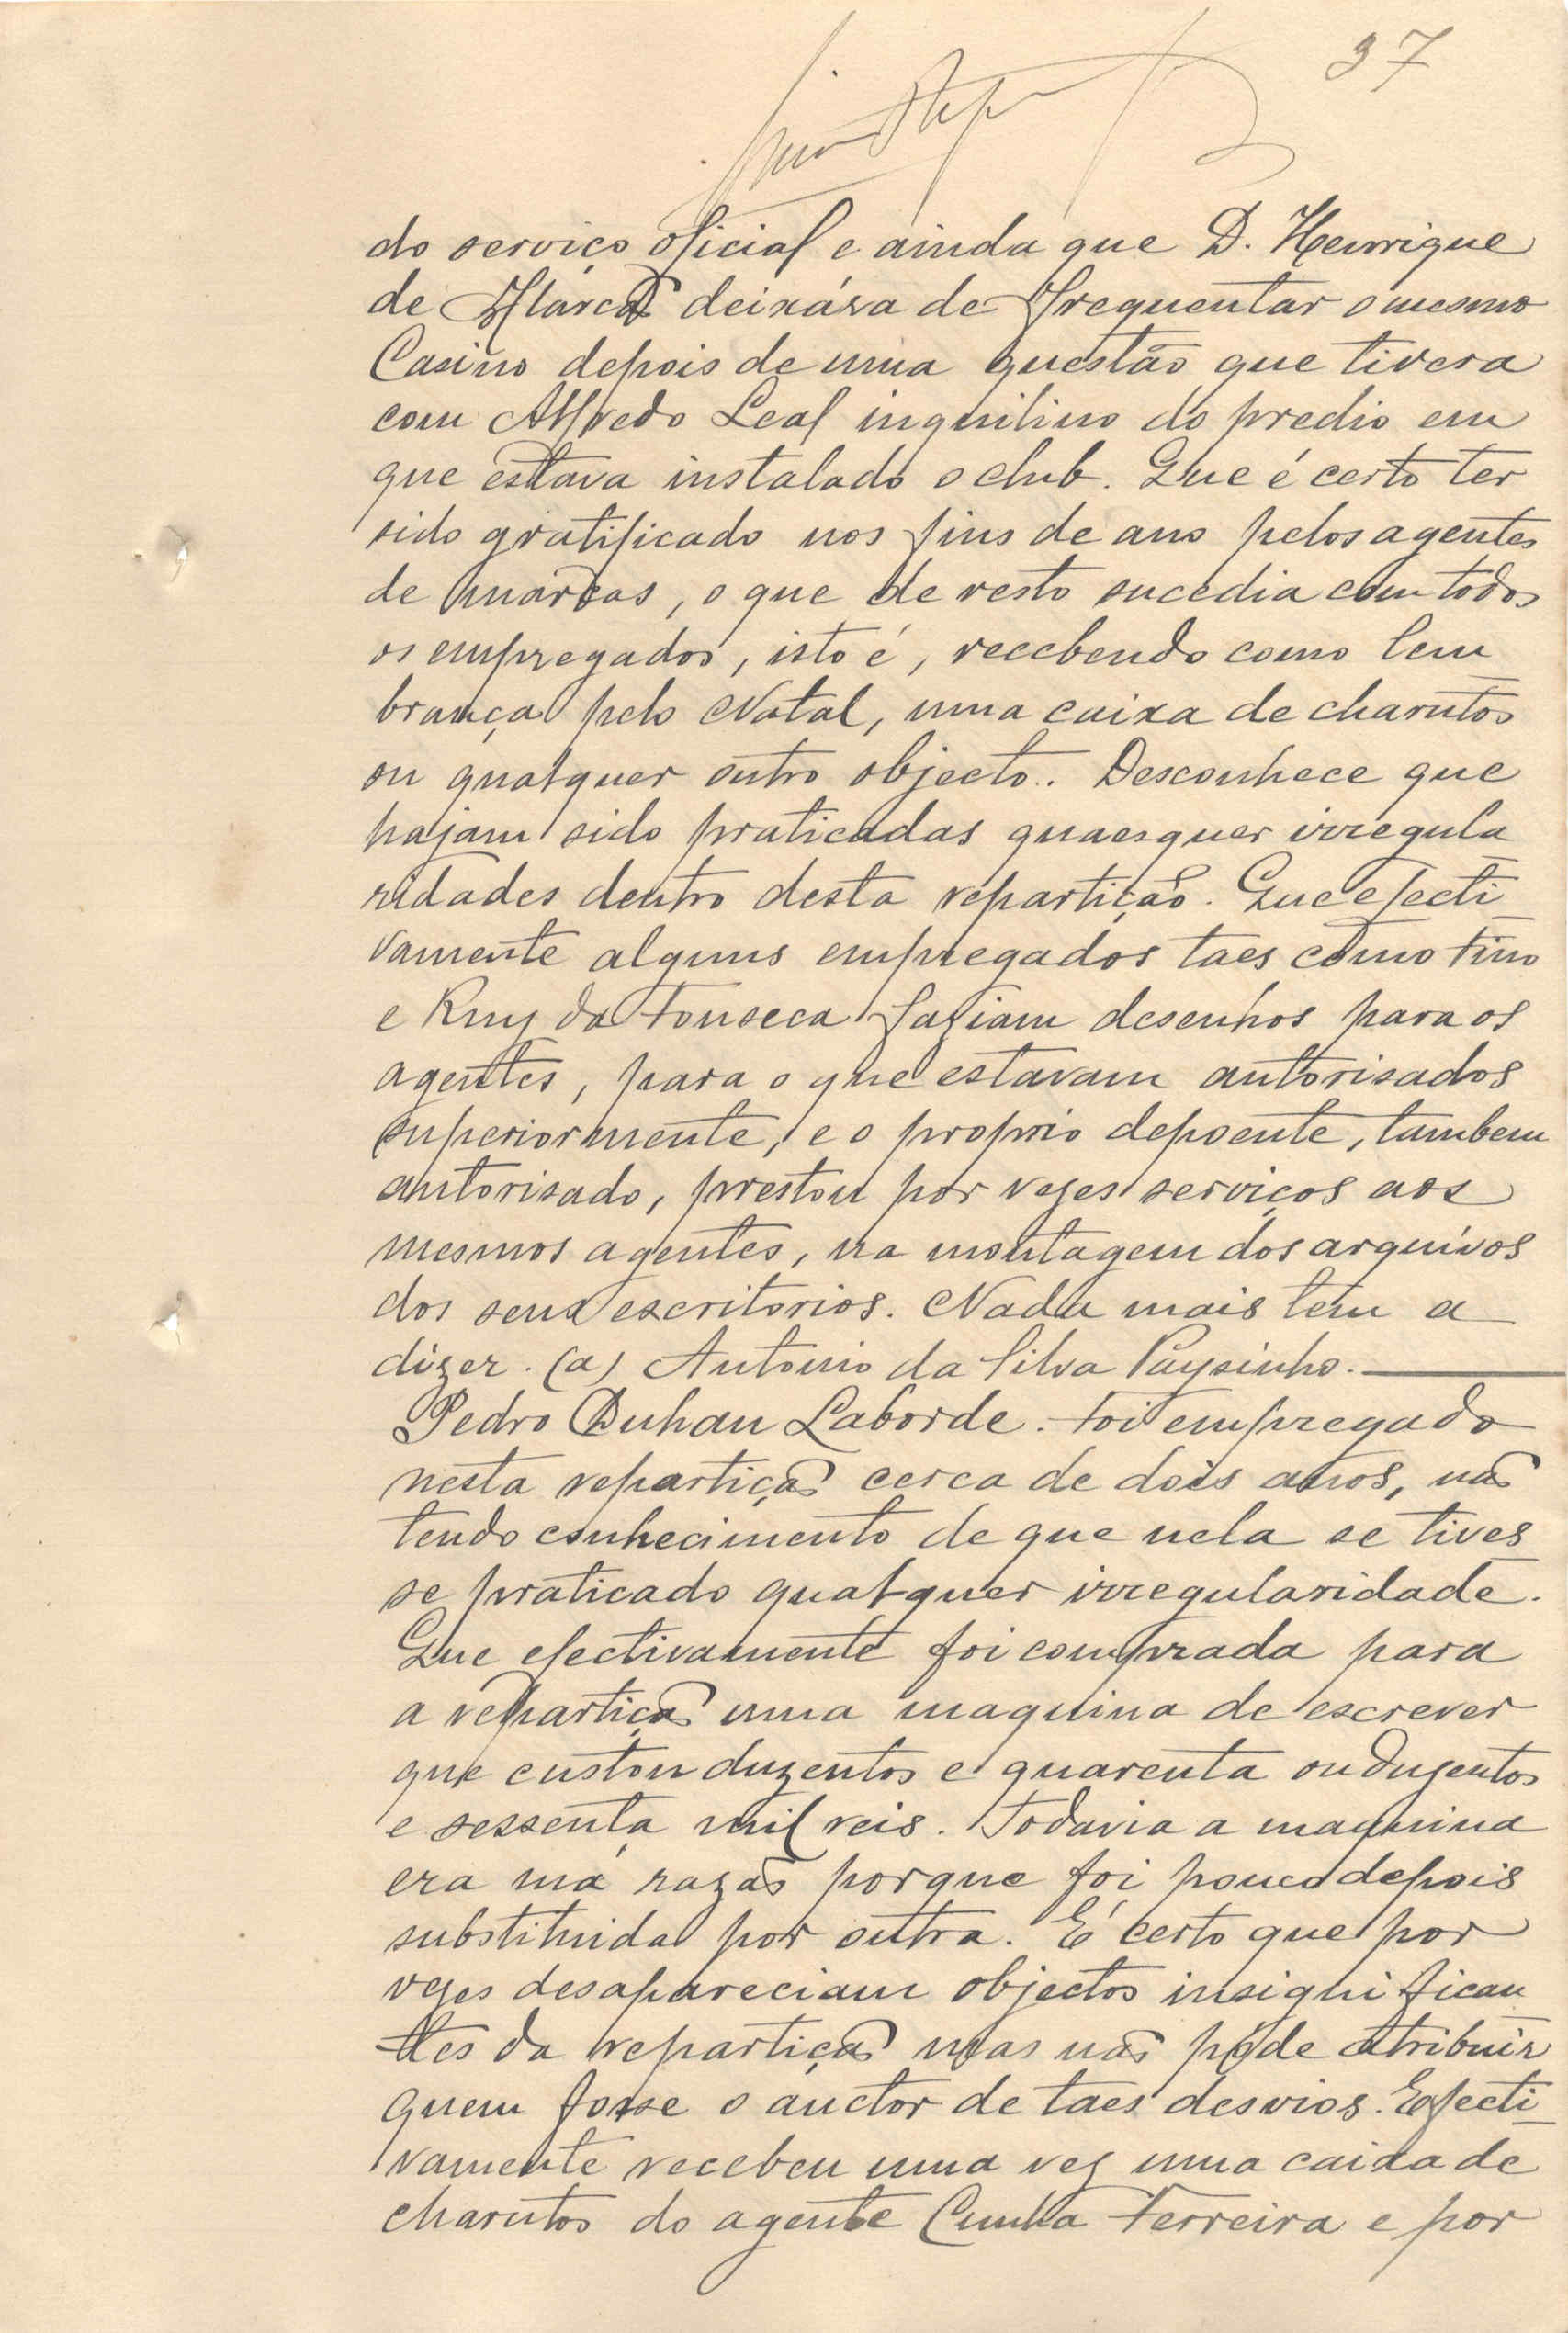 37
do serviço oficial e ainda que D. Henrique
de Alarcão deixára de frequentar o mesmo
Casino depois de uma questão que tivera
com Alfredo Leal inquilino do predio em
que estava instalado o club. Que é certo ter
sido gratificado nos fins de ano pelos agentes
de marcas, o que de resto sucedia com todos
os empregados, isto é, recebendo como lem
brança pelo Natal, uma caixa de charutos
ou qualquer outro objecto. Desconhece que
hajam sido praticadas quaesquer irregula
ridades dentro desta repartição. Que efecti
vamente alguns empregados taes como Fino
e Ruy da Fonseca faziam desenhos para os
agentes, para o que estavam autorisados
superiormente, e o proprio depoente, tambem
autorisado, prestou por vezes serviços aos
mesmos agentes, na montagem dos arquivos
dos seus escritorios. Nada mais tem a
dizer. (a) Antonio da Silva Paysinho.
Pedro Duhau Laborde. Foi empregado
nesta repartição cerca de dois anos, não
tendo conhecimento de que nela se tives
se praticado qualquer irregularidade.
Que efectivamente foi comprada para
a repartição uma maquina de escrever
que custou duzentos e quarenta ou duzentos
e sessenta mil reis. Todavia a maquina
era má razão porque foi pouco depois
substituida por outra. É certo que por
vezes desapareciam objectos insignifican
tes da repartição mas não póde atribuir
quem fosse o auctor de taes desvios. Efecti
vamente recebeu uma vez uma caixa de
charutos do agente Cunha Ferreira e por